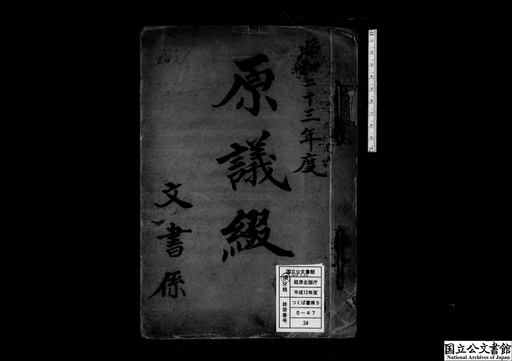 昭和二十三年度
原議綴
文書係
国立公文書館
分類
経済企画庁
平成12年度
つくば書庫5
5-47
排架番号
34
国立公文書館
National Archives of Japan